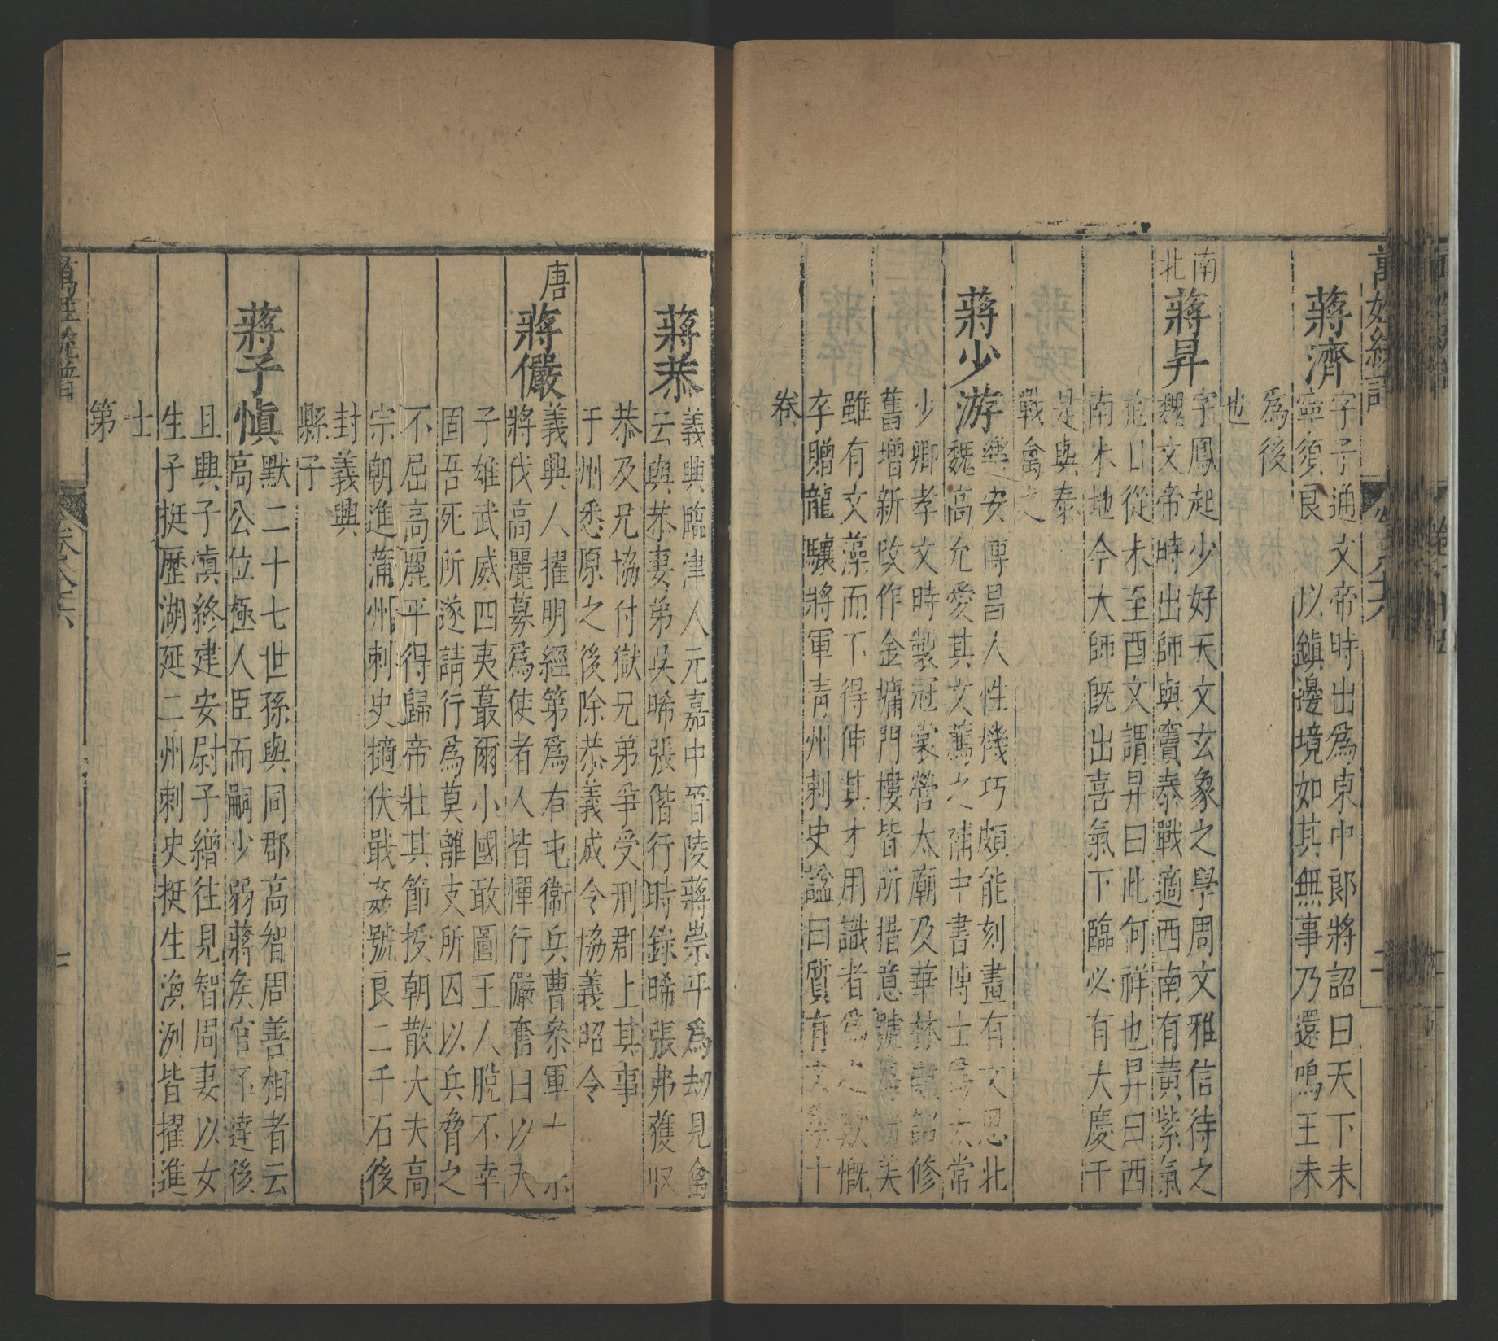 蔣濟
字子通文帝時出爲東中郎將詔曰天下未
寧須良
以鎮邊境如其無事乃還鳴玉未
爲後
也
南北
蔣昇
字鳳起少好天文玄象之學周文雅信待之
魏文帝時出師與竇泰戰適西南有黃紫氣
從未至酉文謂昇曰此何祥也昇曰西
南木地今大師旣出喜氣下臨必有大慶于
是與泰
戰禽之
蔣少游
樂安博昌人性機巧頗能刻畫有文思北
魏高允愛其文薦之補中書博士爲太常
少卿孝文時製冠裳營太廟及華林詔修
舊增新改作金墉門樓皆所措意號美
雖有文藻而不得伸其才用識者爲之歎慨
卒贈龍驤將軍青州刺史諡曰質有文集十
卷
蔣恭
義興臨津人元嘉中晉陵蔣崇平爲劫見禽
云與恭妻弟吳晞張偕行時錄晞張弗獲収
恭及兄協付獄兄弟爭受刑郡上其事
于州悉原之後除恭義成令協義昭令
唐
蔣儼
義興人擢明經第爲右屯衛兵曹叅軍太宗
將伐高麗募爲使者人皆憚行儼奮曰以天
子雄武威四夷蕞爾小國敢圖王人脫不幸
固吾死所遂請行爲莫離支所囚以兵脅之
不屈高麗平得歸帝壯其節授朝散大夫高
宗朝進蒲州刺史擿伏戢姦號良二千石後
封義興
縣子
蔣子愼
默二十七世孫與同郡高智周善相者云
高公位極人臣而嗣少弱蔣矦官不達後
且興子愼終建安尉子繒往見智周妻以女
生子挺歷湖延二州刺史挺生渙洌皆擢進
士
第
萬姓統譜
卷八十六
七